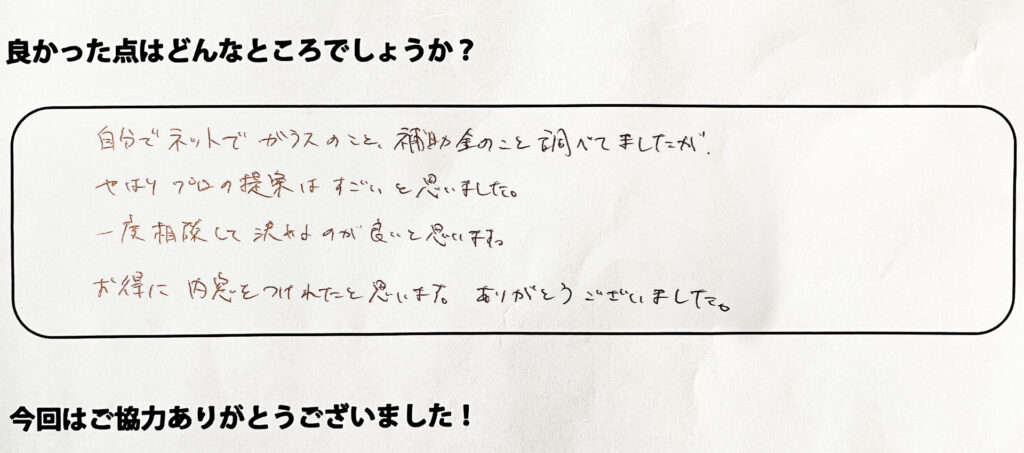 良かった点はどんなところでしょうか？
自分でネットでガラスのこと、補助金のこと調べてましたが、
やはりプロの提案はすごいと思いました。
一度相談して決めるのが良いと思います。
お得に内窓をつけれたと思います。ありがとうございました。
今回はご協力ありがとうございました！